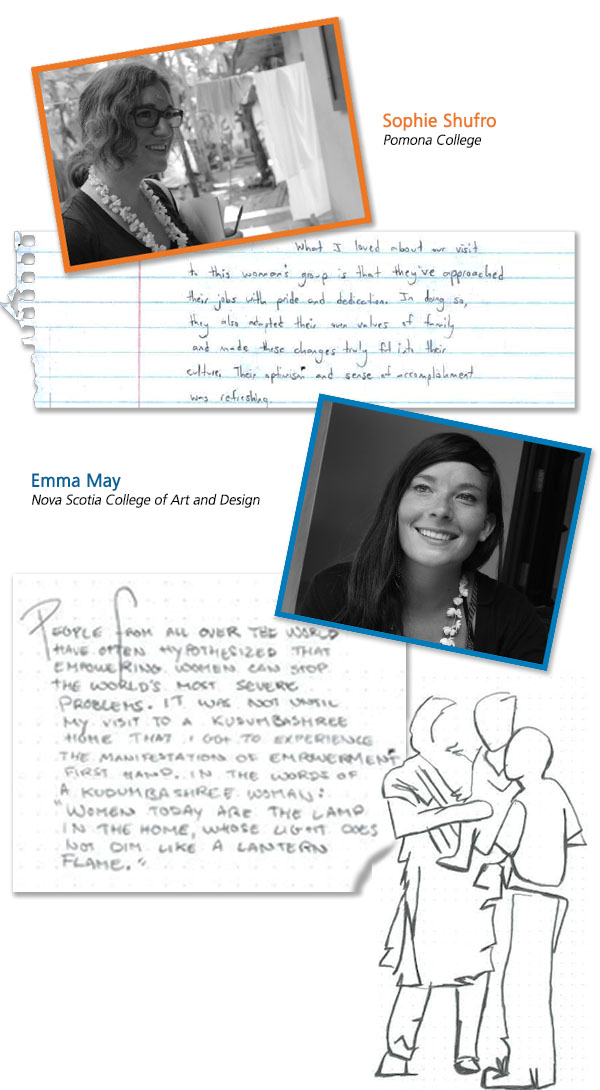 Sophie Shufro
Pomona College
What I loved about our visit
to this women's group is that they've approached
their jobs with pride and dedication. In doing so,
they also adapted their own values of family
and made these changes truly fit into their
culture. Their optimism and sense of accomplishment
was refreshing.
Emma May
Nova Scotia College of Art and Design
PEOPLE FROM ALL OVER THE WORLD
HAVE OFTEN HYPOTHESIZED THAT
EMPOWERING WOMEN CAN STOP
THE WORLD'S MOST SEVERE
PROBLEMS. IT WAS NOT UNTIL
MY VISIT TO A KUSUMBASHREE
HOME THAT I GOT TO EXPERIENCE
THE MANIFESTATION OF EMPOWERMENT
FIRST HAND. IN THE WORDS OF
A KUDUMBASHREE WOMAN:
"WOMEN TODAY ARE THE LAMP
IN THE HOME, WHOSE LIGHT DOES
NOT DIM LIKE A LANTERN
FLAME."